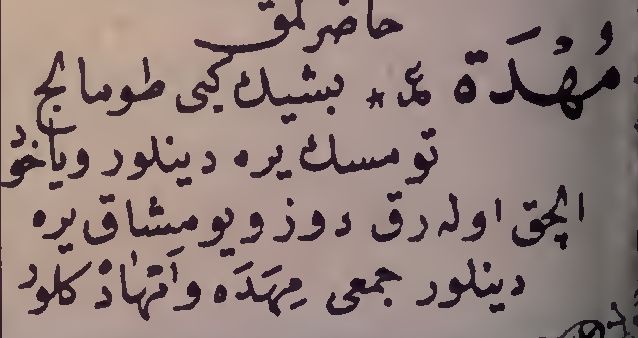 حاضرلمق
مُهْدَة * بشیك كبی طومالج
تومسك یره دینلور ویاخود
الچق اوله رق دوز ویومشاق یره
دینلور جمعی مِهَدَه واَمْهَادْ كلور